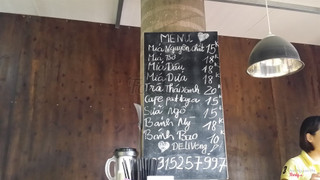 MENU
Mía Nguyên chất 15k
Mía Bơ 18k
Mía Dâu 18k
Mía Dừa 18k
Trà Thái Xanh 20k
Cafe 15k
Sữa Ngô 15k
Bánh Mỳ 18k
Bánh Bao 10k
DELIVERY
315257997